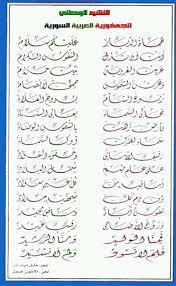 النشيد الوطني
للجمهورية العربية السورية
حماة الديار عليكم سلام
أبت أن تذل النفوس الكرام
عرين العروبة بيت حرام
وعرش الشموس حمى لا يضام
ربوع الشآم بروج العلا
تحاكي السماء بعالي السنا
فأرض زهت بالشموس الوضاء
سماء لعمرك أو كالسماء
رفيف الأماني وخفق الفؤاد
على علم ضم شمل البلاد
أما فيه من كل عين سواد
ومن دم كل شهيد مداد
نفوس أباة وماض مجيد
وروح الأضاحي رقيب عتيد
فمنا الوليد ومنا الرشيد
فلم لا نسود ولم لا نشيد